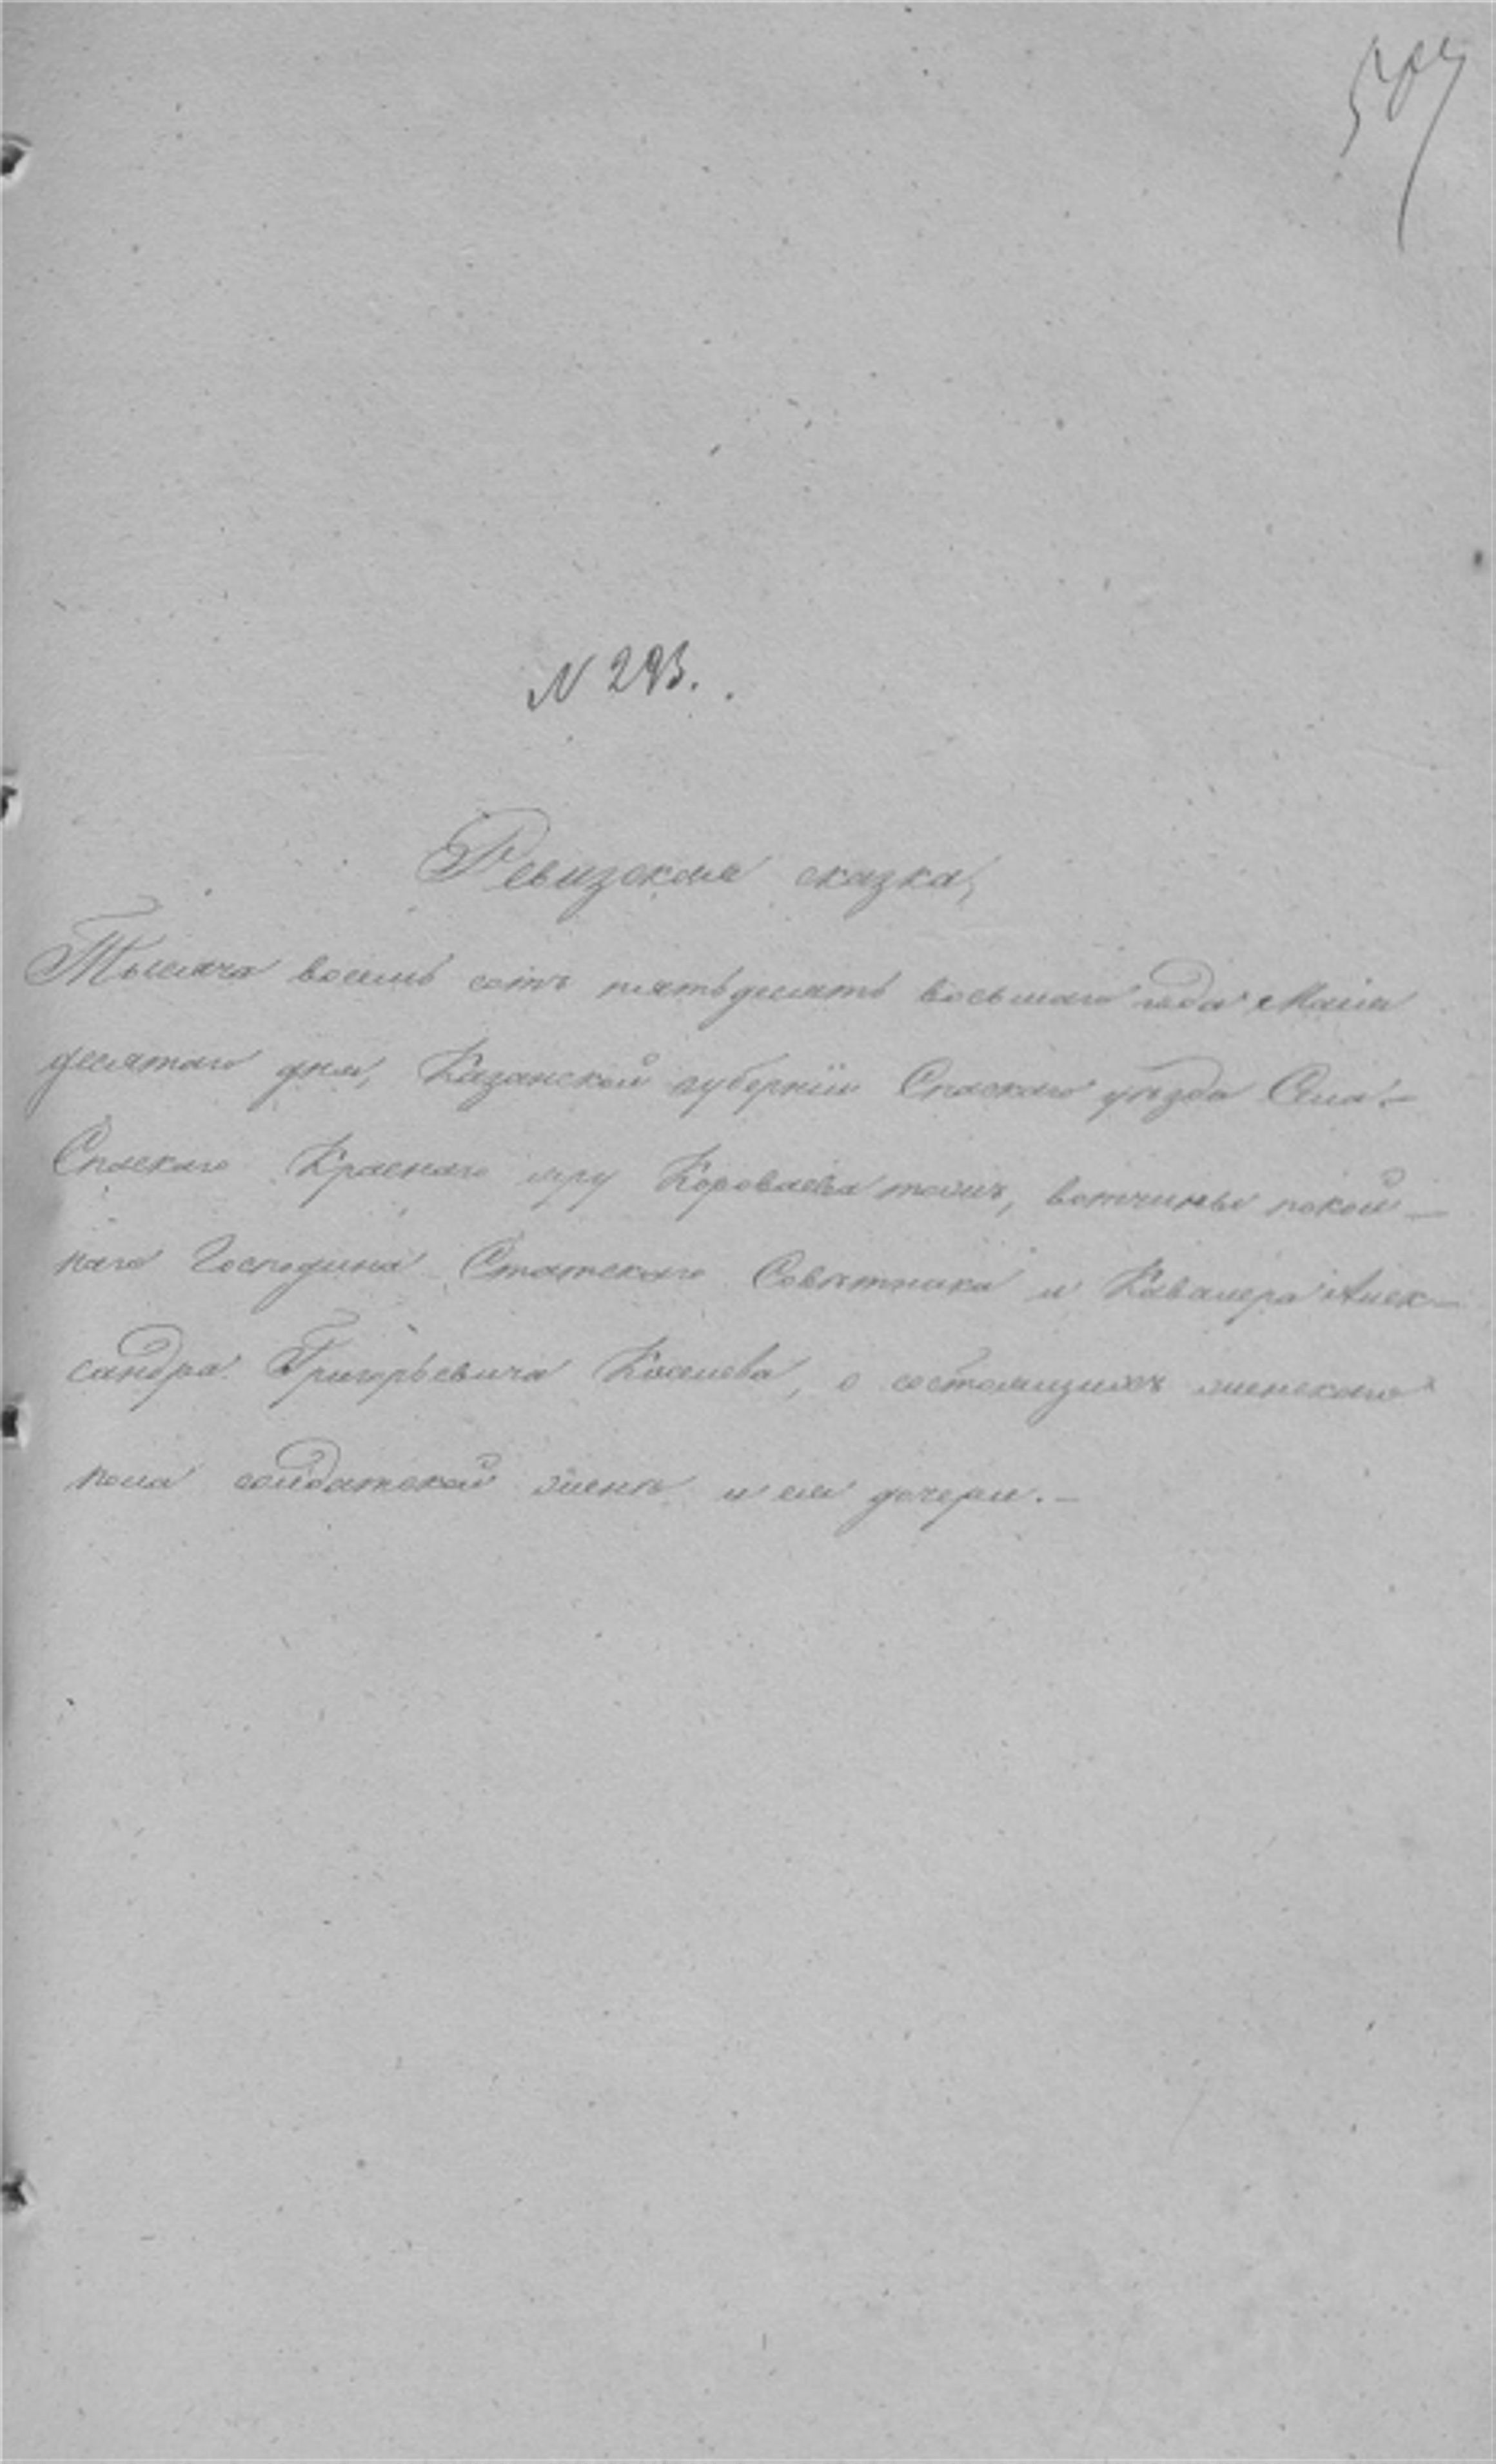 N 293.
Ревизская сказка,
Тысяча восемь сотъ пятьдесятъ восьмаго года Маія
десятаго дня, Казанской губерніи Спаскаго уѣзда Села
Спаскаго Краснаго яру Короваева тожъ, вотчины покой-
наго Господина Статскаго Совѣтника и Кавалера Алек-
сандра Григорьевича о состоящихъ женскаго
пола солдатской женѣ и ея дочери. —